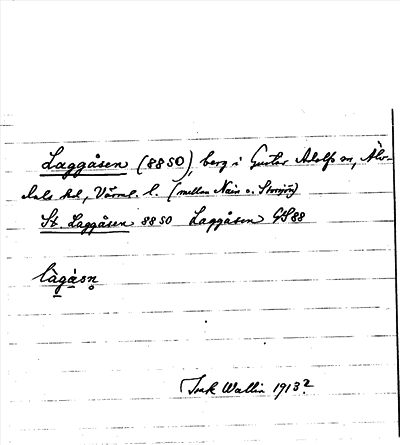 Laggåsen (88 SO), berg i Gustav Adolfs sn, Älv-
dals hd, Värml. l. (mellan Nain o. Storsjön)
St. Laggåsen 88 SO Laggåsen GS 88
làgåsn̥
Wallin 1913?